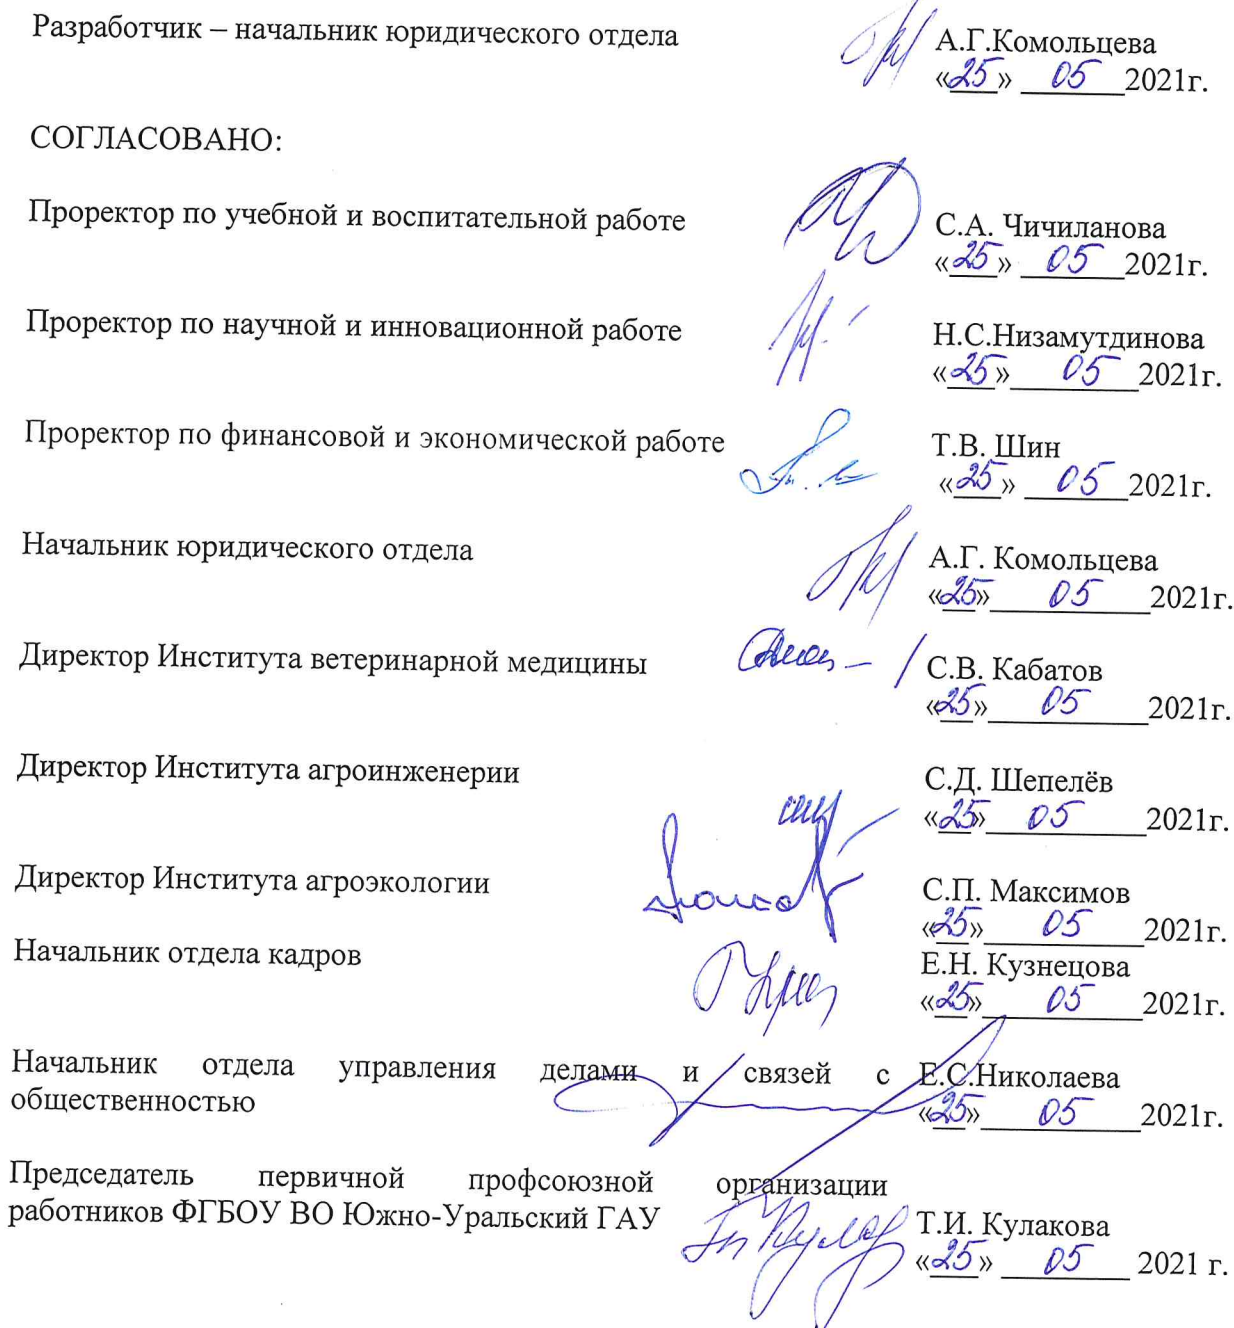 Разработчик – начальник юридического отдела
А.Г.Комольцева
«25» 05 2021г.
СОГЛАСОВАНО:
Проректор по учебной и воспитательной работе
С.А. Чичиланова
«25» 05 2021г.
Проректор по научной и инновационной работе
Н.С.Низамутдинова
«25» 05 2021г.
Проректор по финансовой и экономической работе
Т.В. Шин
«25» 05 2021г.
Начальник юридического отдела
А.Г. Комольцева
«25» 05 2021г.
Директор Института ветеринарной медицины
С.В. Кабатов
«25» 05 2021г.
Директор Института агроинженерии
С.Д. Шепелёв
«25» 05 2021г.
Директор Института агроэкологии
С.П. Максимов
«25» 05 2021г.
Начальник отдела кадров
Е.Н. Кузнецова
«25» 05 2021г.
Начальник отдела управления делами и связей с
общественностью
Е.С.Николаева
«25» 05 2021г.
Председатель первичной профсоюзной организации
работников ФГБОУ ВО Южно-Уральский ГАУ
Т.И. Кулакова
«25» 05 2021 г.